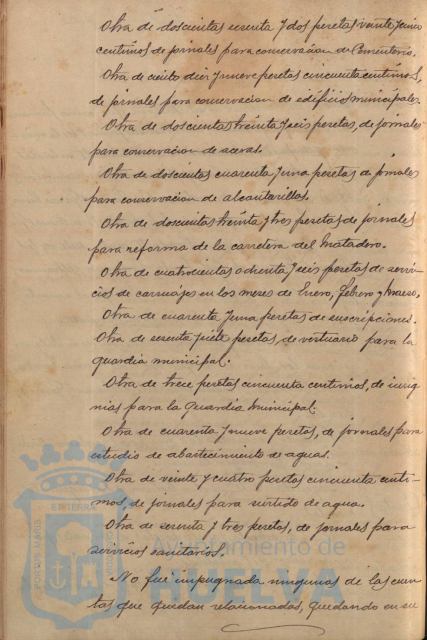 Otra de doscientas sesenta y dos pesetas veinte y cinco
centimos de jornales para conservacion de Cementerio.
Otra de ciento diez y nueve pesetas cincuenta centimos,
de jornales para conservacion de edificios municipales.
Otra de doscientas treinta y seis pesetas, de jornales
para conservacion de aceras.
Otra de doscientas cuarenta y una pesetas de jornales
para conservacion de alcantarillas.
Otra de doscientas treinta y tres pesetas de jornales
para reforma de la carretera del Matadero.
Otra de cuatrocientas ochenta y seis pesetas de servi-
cios de carruajes en los meses de Enero, Febrero y Marzo.
Otra de cuarenta y una pesetas de suscripciones.
Otra de sesenta y siete pesetas, de vestuario para la
guardia municipal.
Otra de trece pesetas cincuenta centimos, de insig
nias para la Guardia Municipal.
Otra de cuarenta y nueve pesetas, de jornales para
estudio de abastecimiento de aguas.
Otra de veinte y cuatro pesetas cincuenta centi-
mos, de jornales para surtido de agua.
Otra de sesenta y tres pesetas, de jornales para
servicios sanitarios.
No fué impugnada ningunas de las cuen-
tas que quedan relacionadas, quedando en su
PORTUS MARIS
ET TERRÆ
Ayuntamiento de
HUELVA